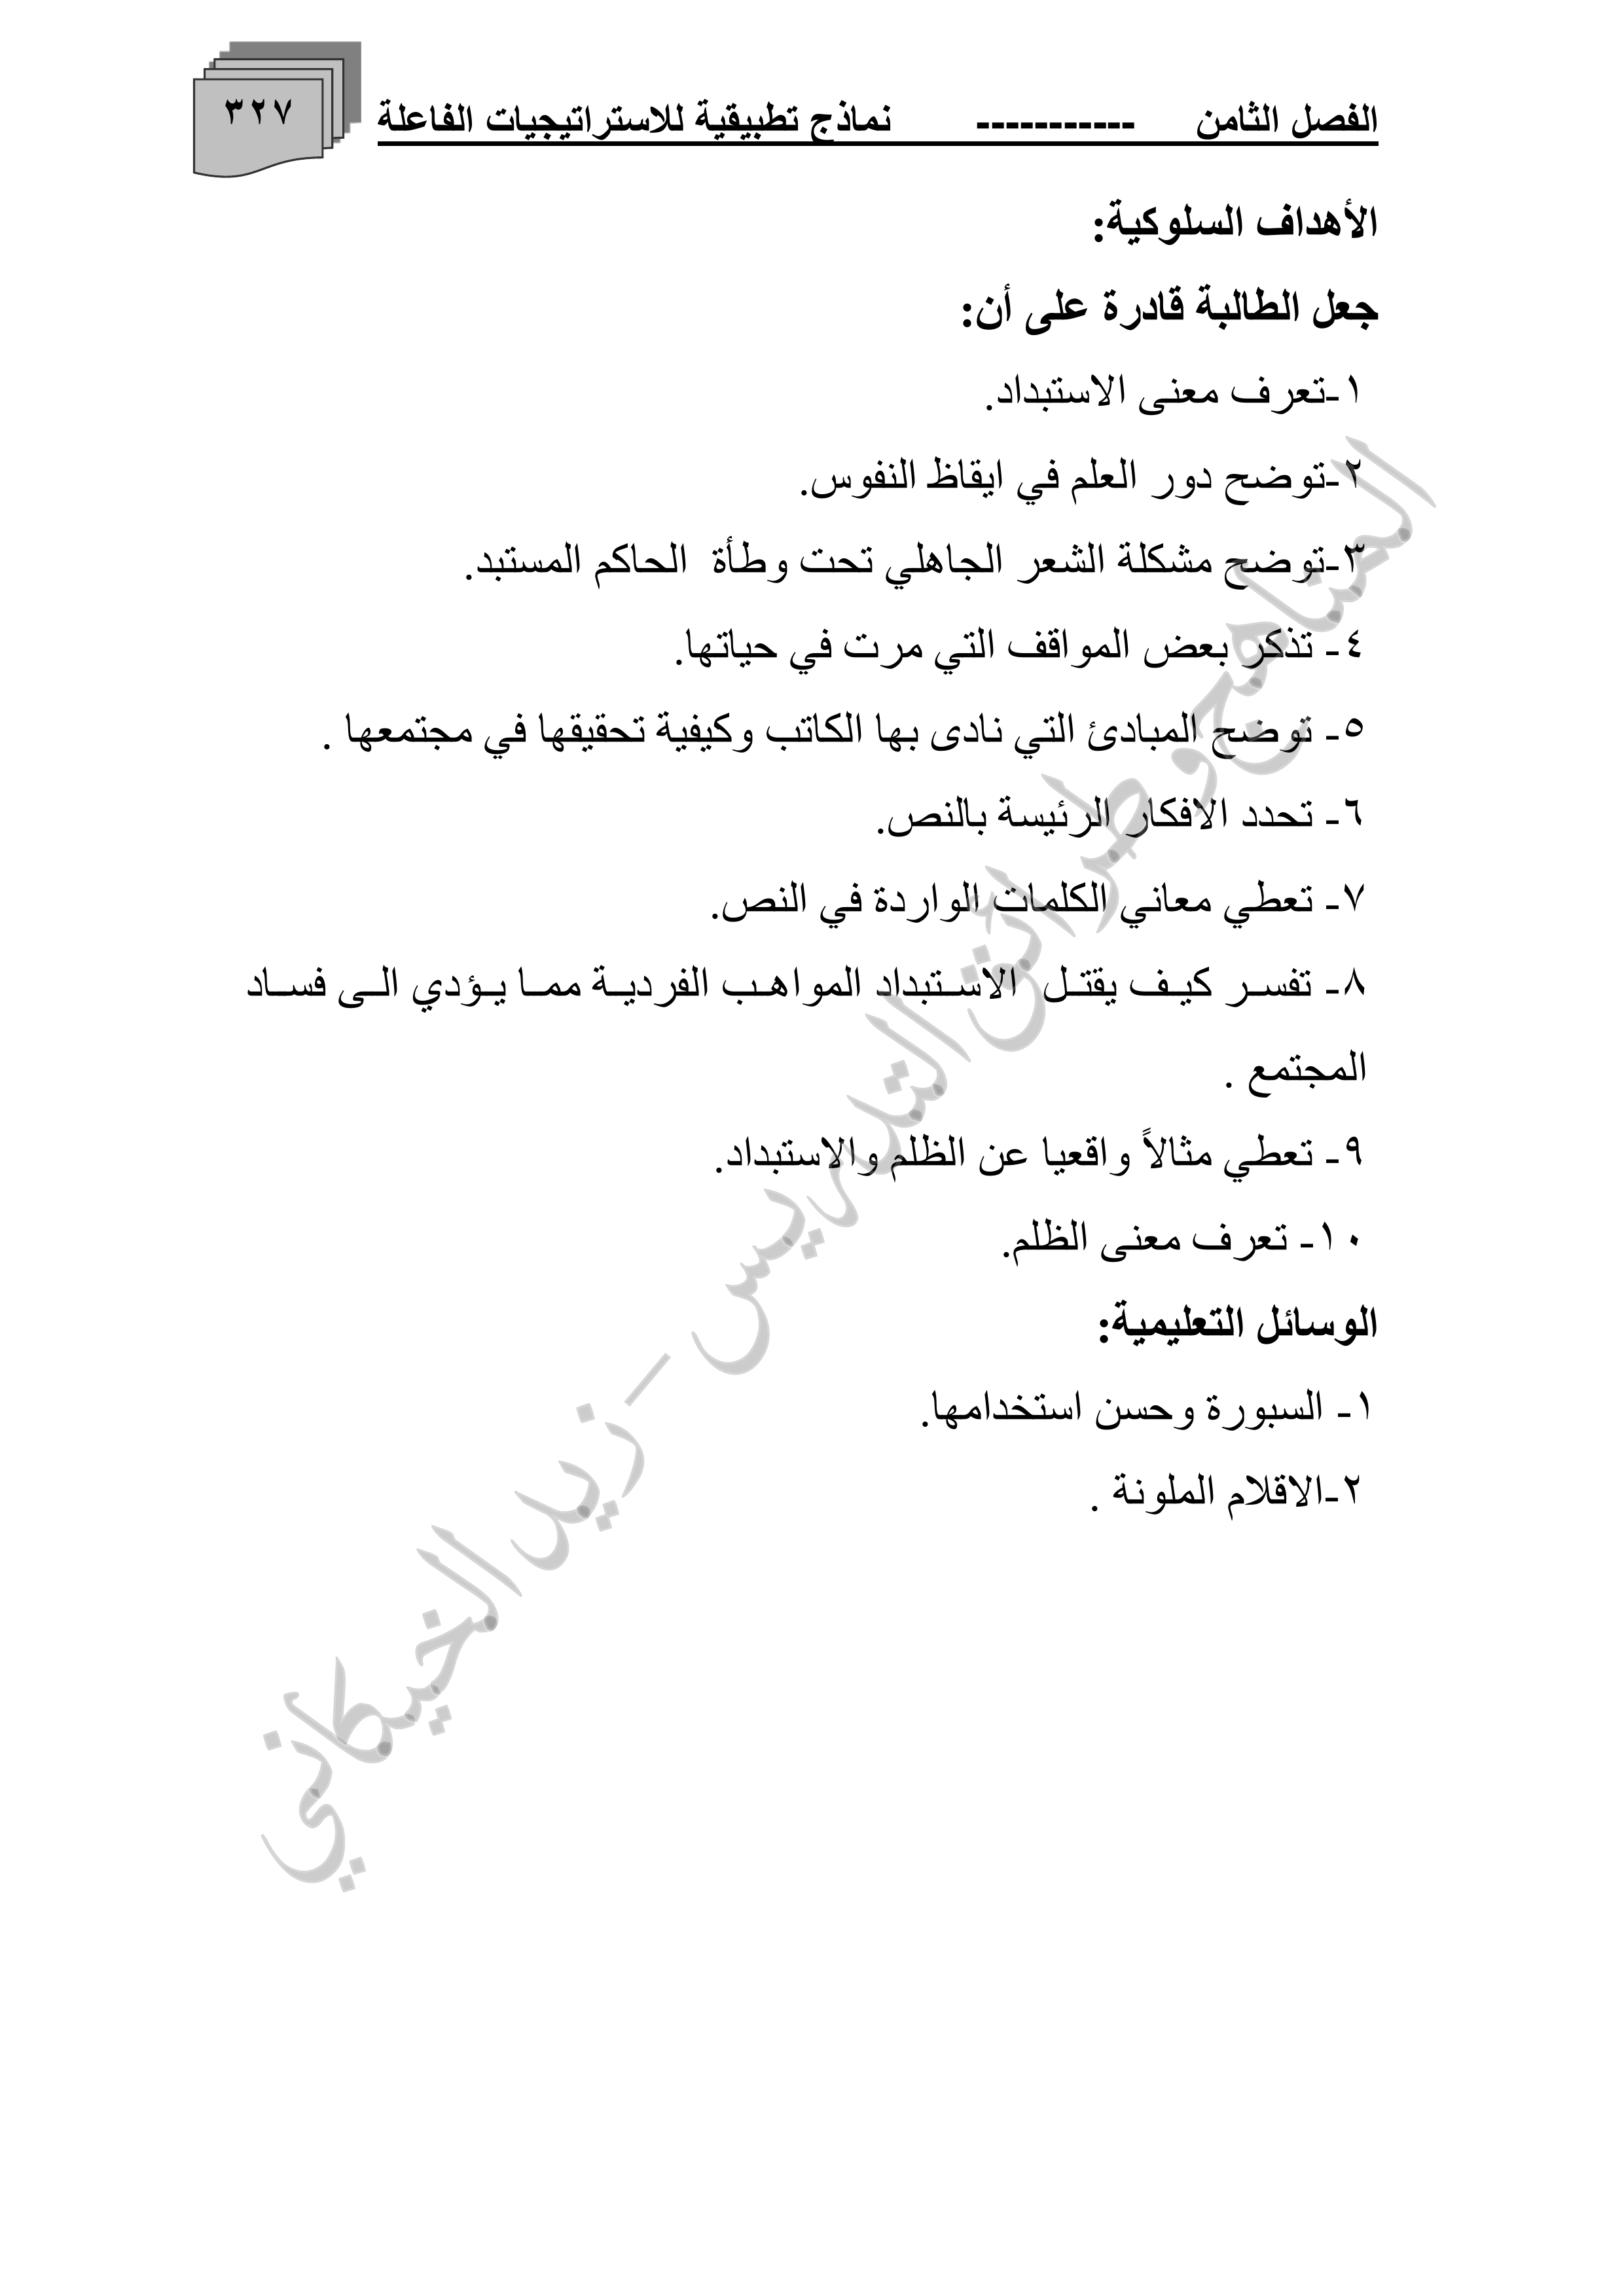 الفصل الثامن ----------- نماذج تطبيقية للاستراتيجيات الفاعلة
٣٢٧
الأهداف السلوكية:
جعل الطالبة قادرة على أن:
١-تعرف معنى الاستبداد.
٢-توضح دور العلم في ايقاظ النفوس.
٣-توضح مشكلة الشعر الجاهلي تحت وطأة الحاكم المستبد.
٤- تذكر بعض المواقف التي مرت في حياتها.
٥- توضح المبادئ التي نادى بها الكاتب وكيفية تحقيقها في مجتمعها .
٦- تحدد الافكار الرئيسة بالنص.
٧- تعطي معاني الكلمات الواردة في النص.
٨- تفسـر كيـف يقتـل الاسـتبداد المواهـب الفرديـة ممـا يـؤدي الـى فسـاد
المجتمع .
٩- تعطي مثالاً واقعيا عن الظلم والاستبداد.
١٠- تعرف معنى الظلم.
الوسائل التعليمية:
١- السبورة وحسن استخدامها.
٢-الاقلام الملونة .
المناهج وطرائق التدريس - زيد الخيكاني